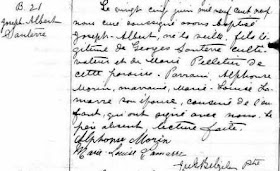 B. 21
Joseph Albert
Santerre
Le vingt cinq juin mil neuf cent neuf
nous curé soussigné avons baptisé
Joseph-Albert, né la veille, fils lé-
gitime de Georges Santerre culti-
vateur et de Marie Pelletier de
cette paroisse. Parrain, Alphonse
Morin, marraine, Marie-Louise La-
marre son épouse, cousine de l'en-
fant, qui ont signé avec nous. Le
père absent, lecture faite.
Alphonse Morin
Marie Louise Lamarre
Ptre